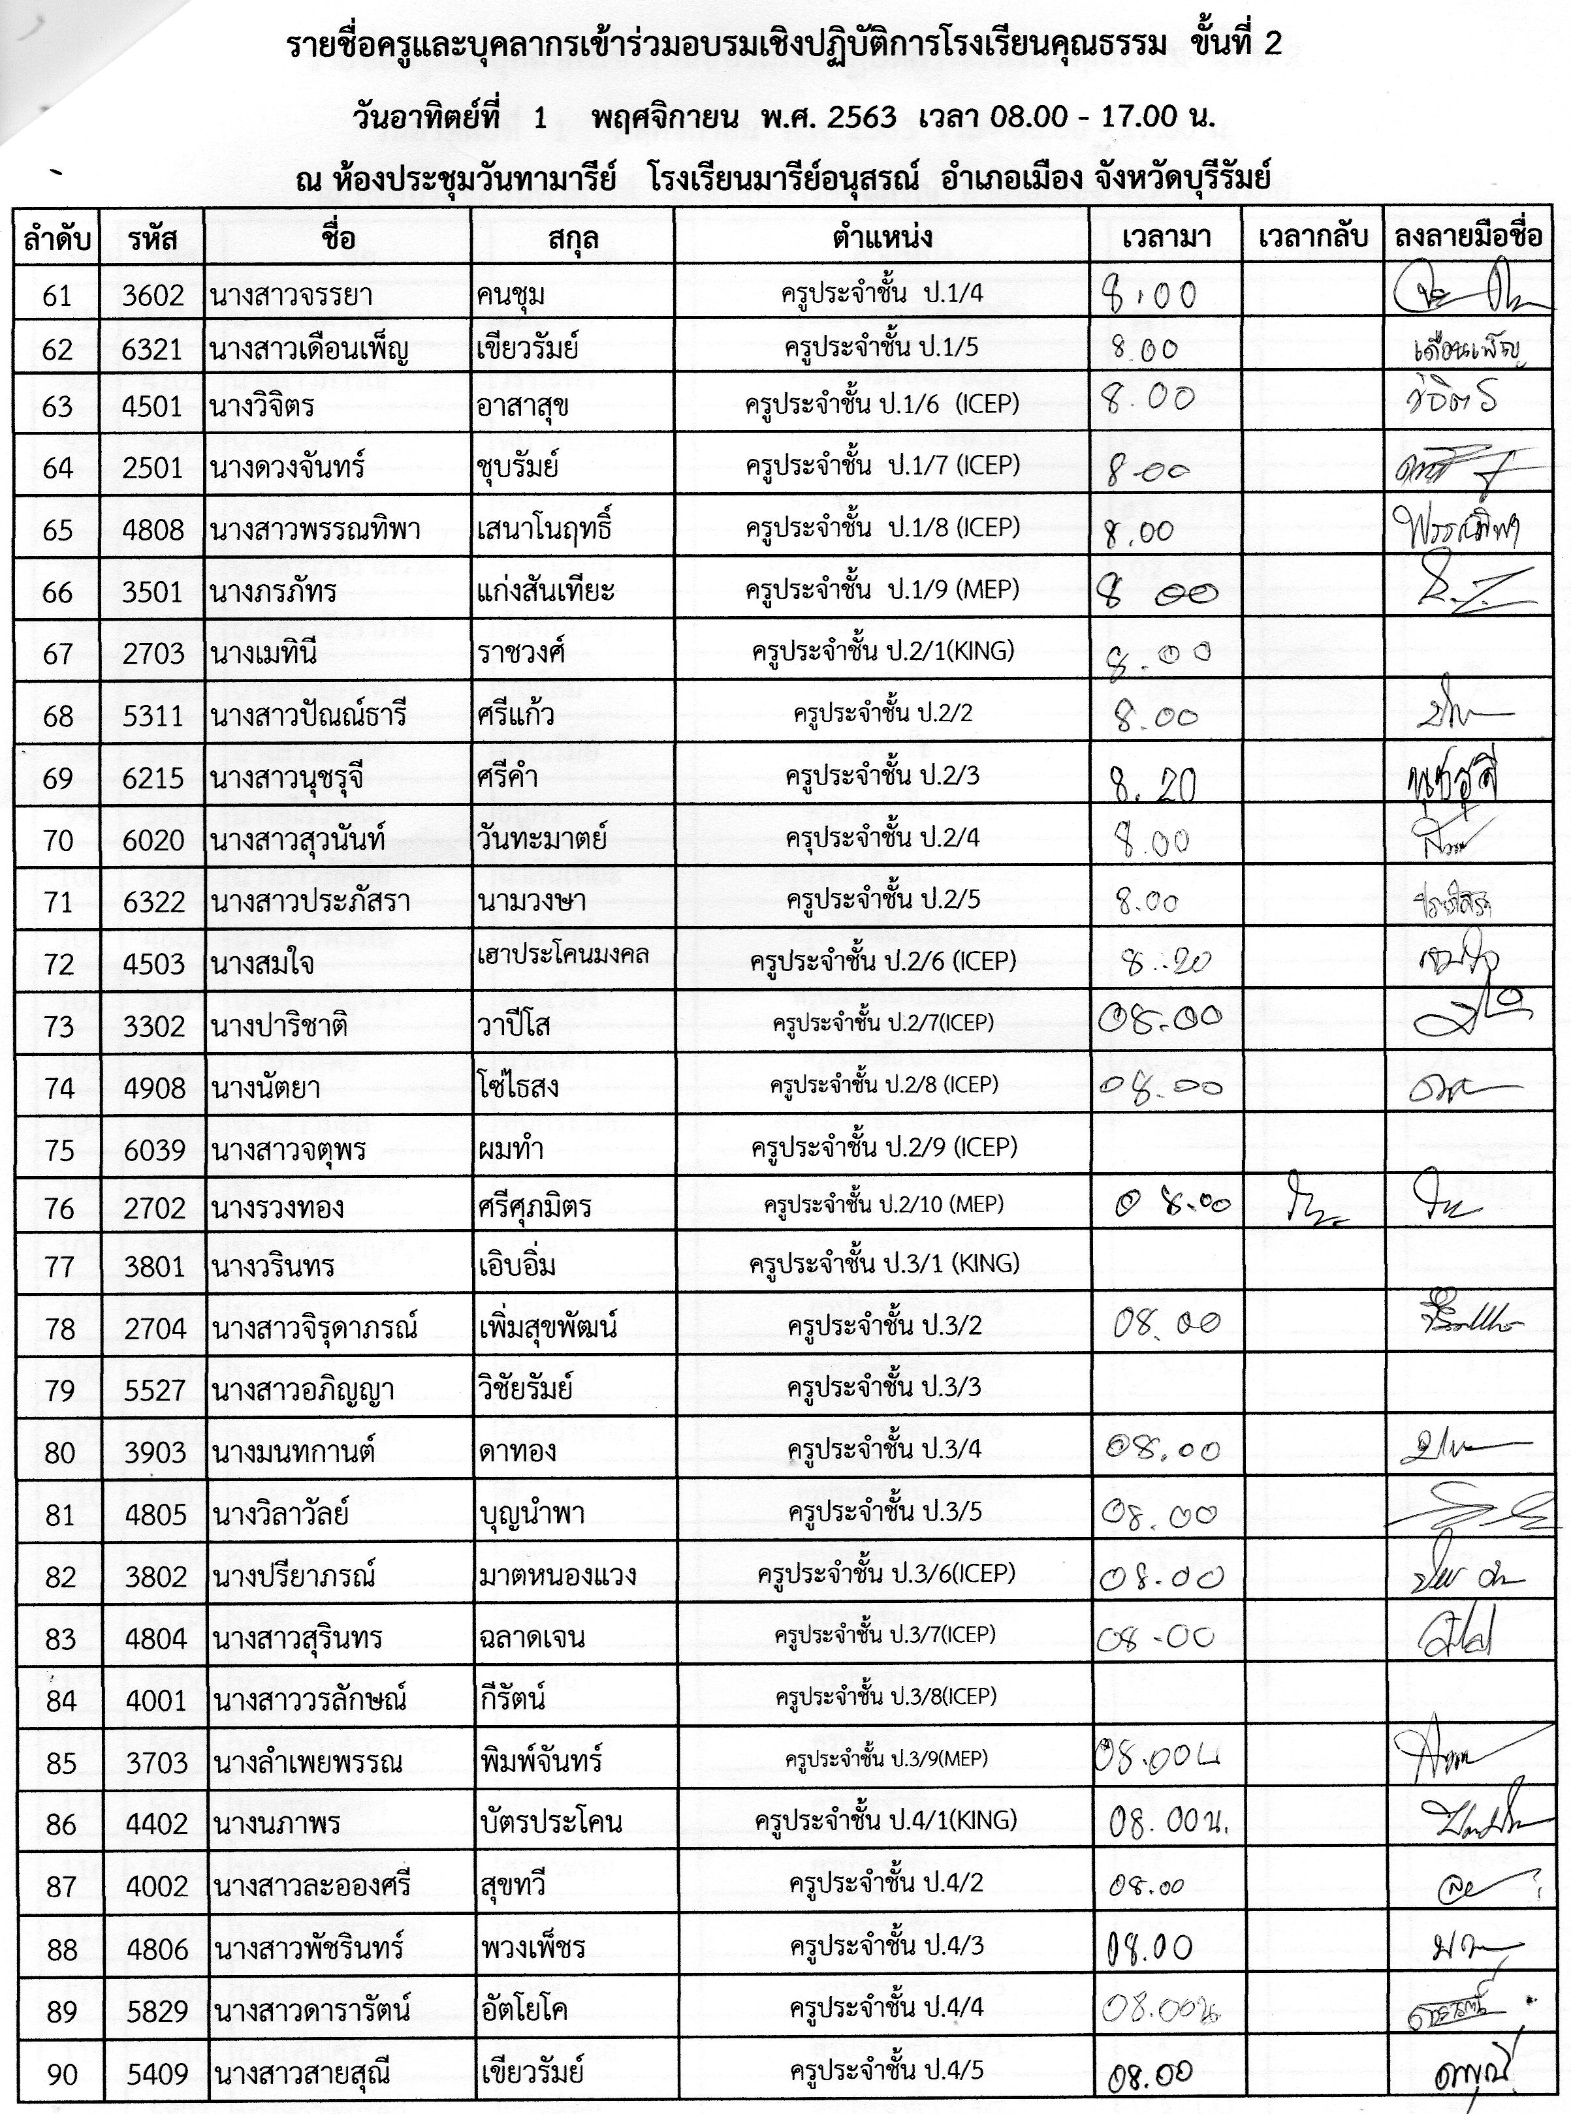 รายชื่อครูและบุคลากรเข้าร่วมอบรมเชิงปฏิบัติการโรงเรียนคุณธรรม ขั้นที่ 2
วันอาทิตย์ที่ 1 พฤศจิกายน พ.ศ. 2563 เวลา 08.00 - 17.00 น.
ณ ห้องประชุมวันทามารีย์ โรงเรียนมารีย์อนุสรณ์ อำเภอเมือง จังหวัดบุรีรัมย์
ลำดับ รหัส ชื่อ สกุล ตำแหน่ง เวลามา เวลากลับ ลงลายมือชื่อ
61 3602 นางสาวจรรยา คนชุม ครูประจำชั้น ป.1/4 8.00
62 6321 นางสาวเดือนเพ็ญ เขียวรัมย์ ครูประจำชั้น ป.1/5 8.00 เดือนเพ็ญ
63 4501 นางวิจิตร อาสาสุข ครูประจำชั้น ป.1/6 (ICEP) 8.00 วิจิตร
64 2501 นางดวงจันทร์ ชุบรัมย์ ครูประจำชั้น ป.1/7 (ICEP) 8.00
65 4808 นางสาวพรรณทิพา เสนาโนฤทธิ์ ครูประจำชั้น ป.1/8 (ICEP) 8.00 พรรณทิพา
66 3501 นางภรภัทร แก่งสันเทียะ ครูประจำชั้น ป.1/9 (MEP) 8 00
67 2703 นางเมทินี ราชวงศ์ ครูประจำชั้น ป.2/1(KING) 8.00
68 5311 นางสาวปัณณ์ธารี ศรีแก้ว ครูประจำชั้น ป.2/2 8.00
69 6215 นางสาวนุชรุจี ศรีคำ ครูประจำชั้น ป.2/3 8.20 นุชรุจี
70 6020 นางสาวสุวนันท์ วันทะมาตย์ ครุประจำชั้น ป.2/4 8.00
71 6322 นางสาวประภัสรา นามวงษา ครูประจำชั้น ป.2/5 8.00 ประภัสรา
72 4503 นางสมใจ เฮาประโคนมงคล ครูประจำชั้น ป.2/6 (ICEP) 8.20 สมใจ
73 3302 นางปาริชาติ วาปีโส ครูประจำชั้น ป.2/7(ICEP) 08.00
74 4908 นางนัตยา โซ่ไธสง ครูประจำชั้น ป.2/8 (ICEP) 08.00
75 6039 นางสาวจตุพร ผมทำ ครูประจำชั้น ป.2/9 (ICEP)
76 2702 นางรวงทอง ศรีศุภมิตร ครูประจำชั้น ป.2/10 (MEP) 08.00
77 3801 นางวรินทร เอิบอิ่ม ครูประจำชั้น ป.3/1 (KING)
78 2704 นางสาวจิรุดาภรณ์ เพิ่มสุขพัฒน์ ครูประจำชั้น ป.3/2 08.00
79 5527 นางสาวอภิญญา วิชัยรัมย์ ครูประจำชั้น ป.3/3
80 3903 นางมนทกานต์ ดาทอง ครูประจำชั้น ป.3/4 08.00
81 4805 นางวิลาวัลย์ บุญนำพา ครูประจำชั้น ป.3/5 08.00
82 3802 นางปรียาภรณ์ มาตหนองแวง ครูประจำชั้น ป.3/6(ICEP) 08.00
83 4804 นางสาวสุรินทร ฉลาดเจน ครูประจำชั้น ป.3/7(ICEP) 08.00
84 4001 นางสาววรลักษณ์ กีรัตน์ ครูประจำชั้น ป.3/8(ICEP)
85 3703 นางลำเพยพรรณ พิมพ์จันทร์ ครูประจำชั้น ป.3/9(MEP) 08.00น
86 4402 นางนภาพร บัตรประโคน ครูประจำชั้น ป.4/1(KING) 08.00น.
87 4002 นางสาวละอองศรี สุขทวี ครูประจำชั้น ป.4/2 08.00
88 4806 นางสาวพัชรินทร์ พวงเพ็ชร ครูประจำชั้น ป.4/3 08.00
89 5829 นางสาวดารารัตน์ อัตโยโค ครูประจำชั้น ป.4/4 08.00น.
90 5409 นางสาวสายสุณี เขียวรัมย์ ครูประจำชั้น ป.4/5 08.00